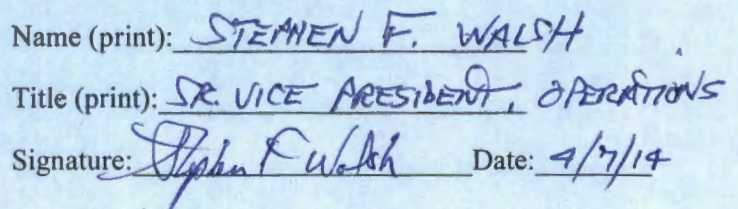 Name (print): STEPHEN F. WALSH
Title (print): SR. VICE PRESIDENT, OPERATIONS
Signature: Stephen F Walsh Date: 4/7/14